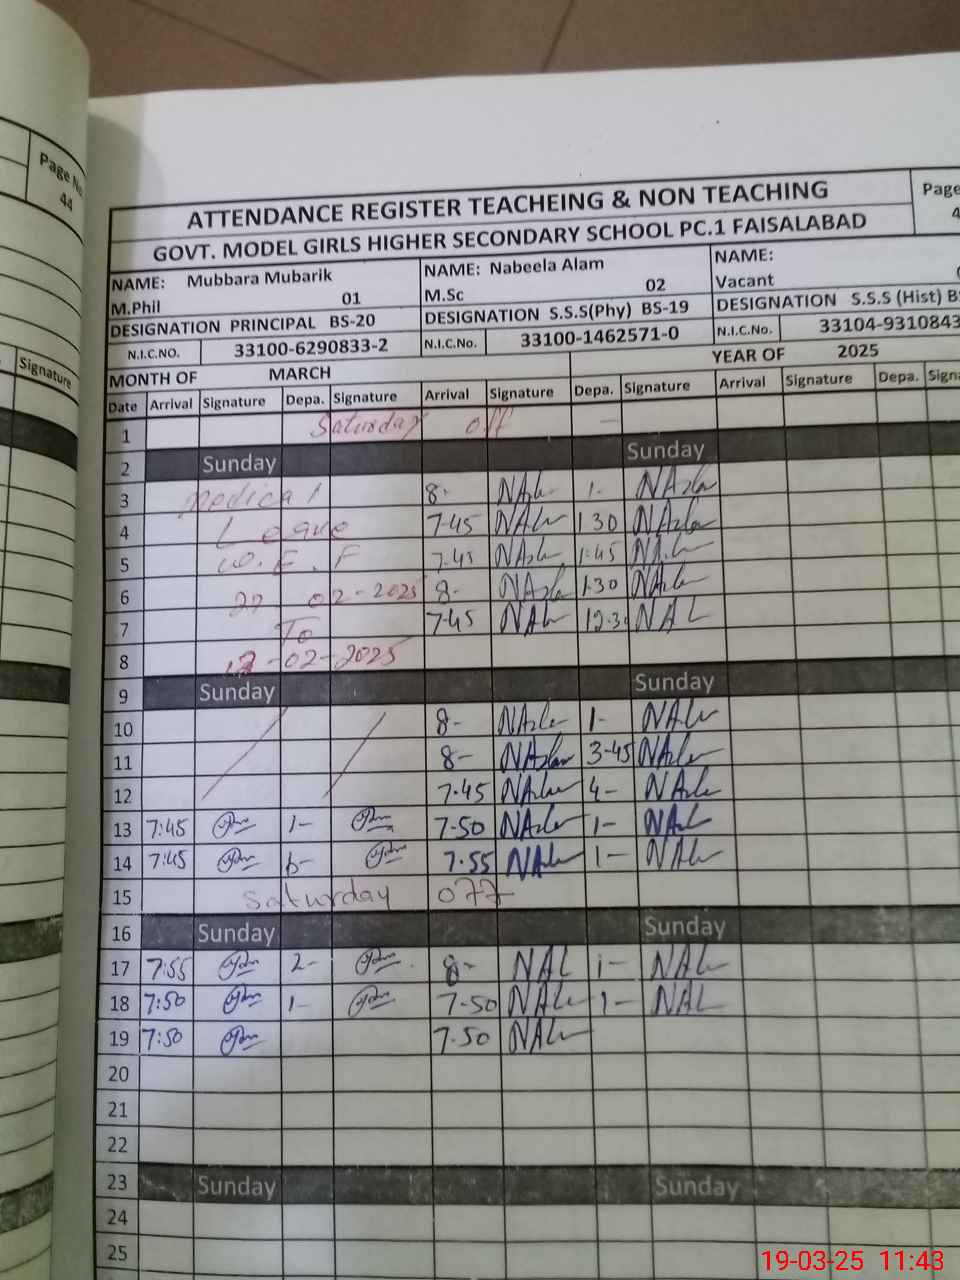 Page No.
44
Signature
ATTENDANCE REGISTER TEACHEING & NON TEACHING
Page
4
GOVT. MODEL GIRLS HIGHER SECONDARY SCHOOL PC.1 FAISALABAD
NAME: Mubbara Mubarik NAME: Nabeela Alam NAME:
M.Phil 01 M.Sc 02 Vacant
DESIGNATION PRINCIPAL BS-20 DESIGNATION S.S.S(Phy) BS-19 DESIGNATION S.S.S (Hist) B
N.I.C.NO. 33100-6290833-2 N.I.C.No. 33100-1462571-0 N.I.C.No. 33104-9310843
MONTH OF MARCH YEAR OF 2025
Date Arrival Signature Depa. Signature Arrival Signature Depa. Signature Arrival Signature Depa. Signa
1 Saturday off
2 Sunday Sunday
3 Medical 8- 1-
4 Leave 7-45 1 30
5 W.E.F 7.45 1:45
6 02-2025 8- 1:30
7 To 7-45 12-3
8 -02-2025
9 Sunday Sunday
10 8- 1-
11 8- 3-45
12 7.45 4-
13 7:45 1- 7-50 1-
14 7:45 7.55 1-
15 saturday off
16 Sunday Sunday
17 7:55 2- 8- NAL 1-
18 7:50 1- 7-50 1- NAL
19 7:50 7.50
20
21
22
23 Sunday Sunday
24
25
19-03-25 11:43